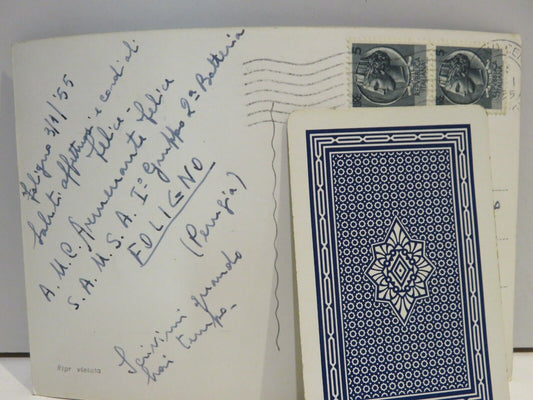 Foligno 3/1/'55
Saluti affettuosi e cordiali
Felice -
A.U.C. Armenante Felice
S.A.U.S.A. I° Gruppo 2ª Batteria
FOLIGNO
(Perugia)
Scrivimi quando
hai tempo -
Ripr vietata
5
5